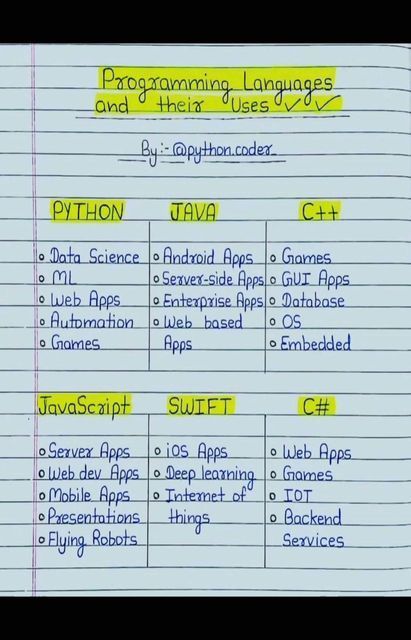 Programming Languages
and their Uses ✓✓
By:- @python.coder
PYTHON
Data Science
ML
Web Apps
Automation
Games
JAVA
Android Apps
Server-side Apps
Enterprise Apps
Web based
Apps
C++
Games
GUI Apps
Database
OS
Embedded
JavaScript
Server Apps
Web dev Apps
Mobile Apps
Presentations
Flying Robots
SWIFT
iOS Apps
Deep learning
Internet of
things
C#
Web Apps
Games
IOT
Backend
Services